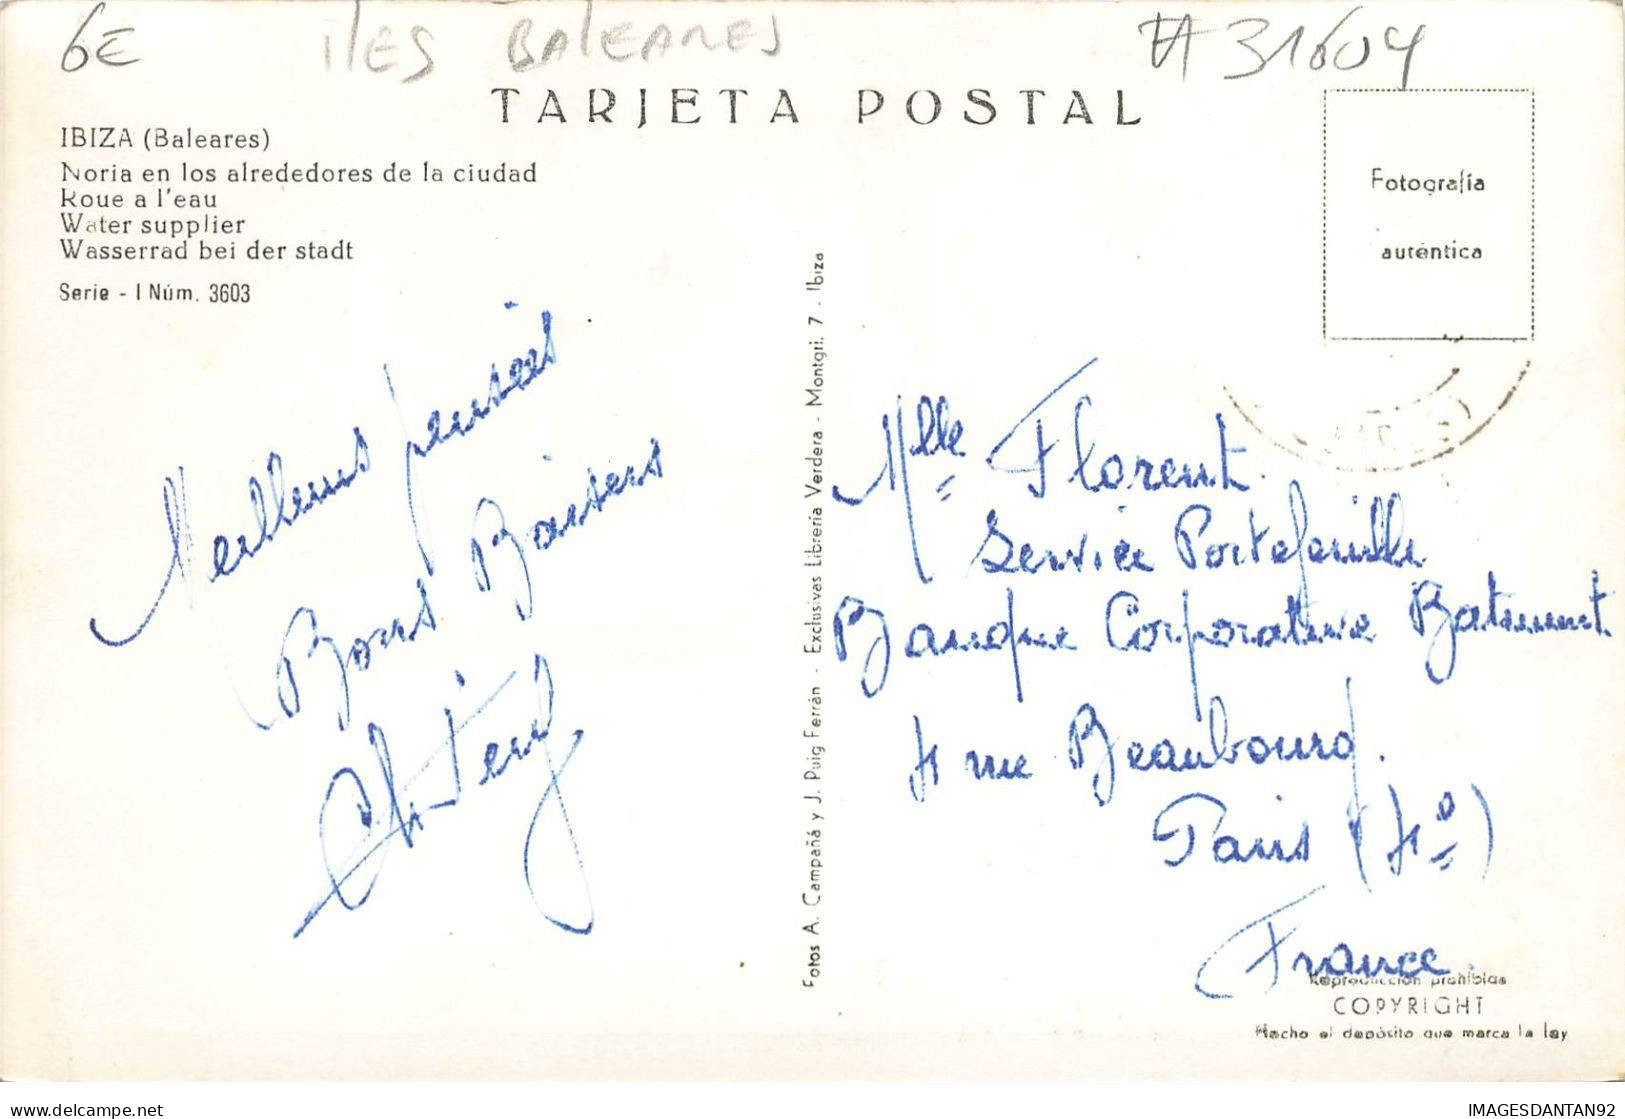 6E
ILES BALEARES
#31604
TARJETA POSTAL
IBIZA (Baleares)
Noria en los alrededores de la ciudad
Roue a l'eau
Water supplier
Wasserrad bei der stadt
Serie - I Núm. 3603
Fotografía
auténtica
Meilleures pensées
Bons Baisers
Fotos A. Campañá y J. Puig Ferrán - Exclusivas Librería Verdera - Montgri, 7 - Ibiza
Mlle Florent.
Service Portefeuille
Banque Corporative Batiment
4 rue Beaubourg.
Paris (4º)
France.
Reproducción prohibida
COPYRIGHT
Hecho el depósito que marca la ley
delcampe.net
IMAGESDANTAN92